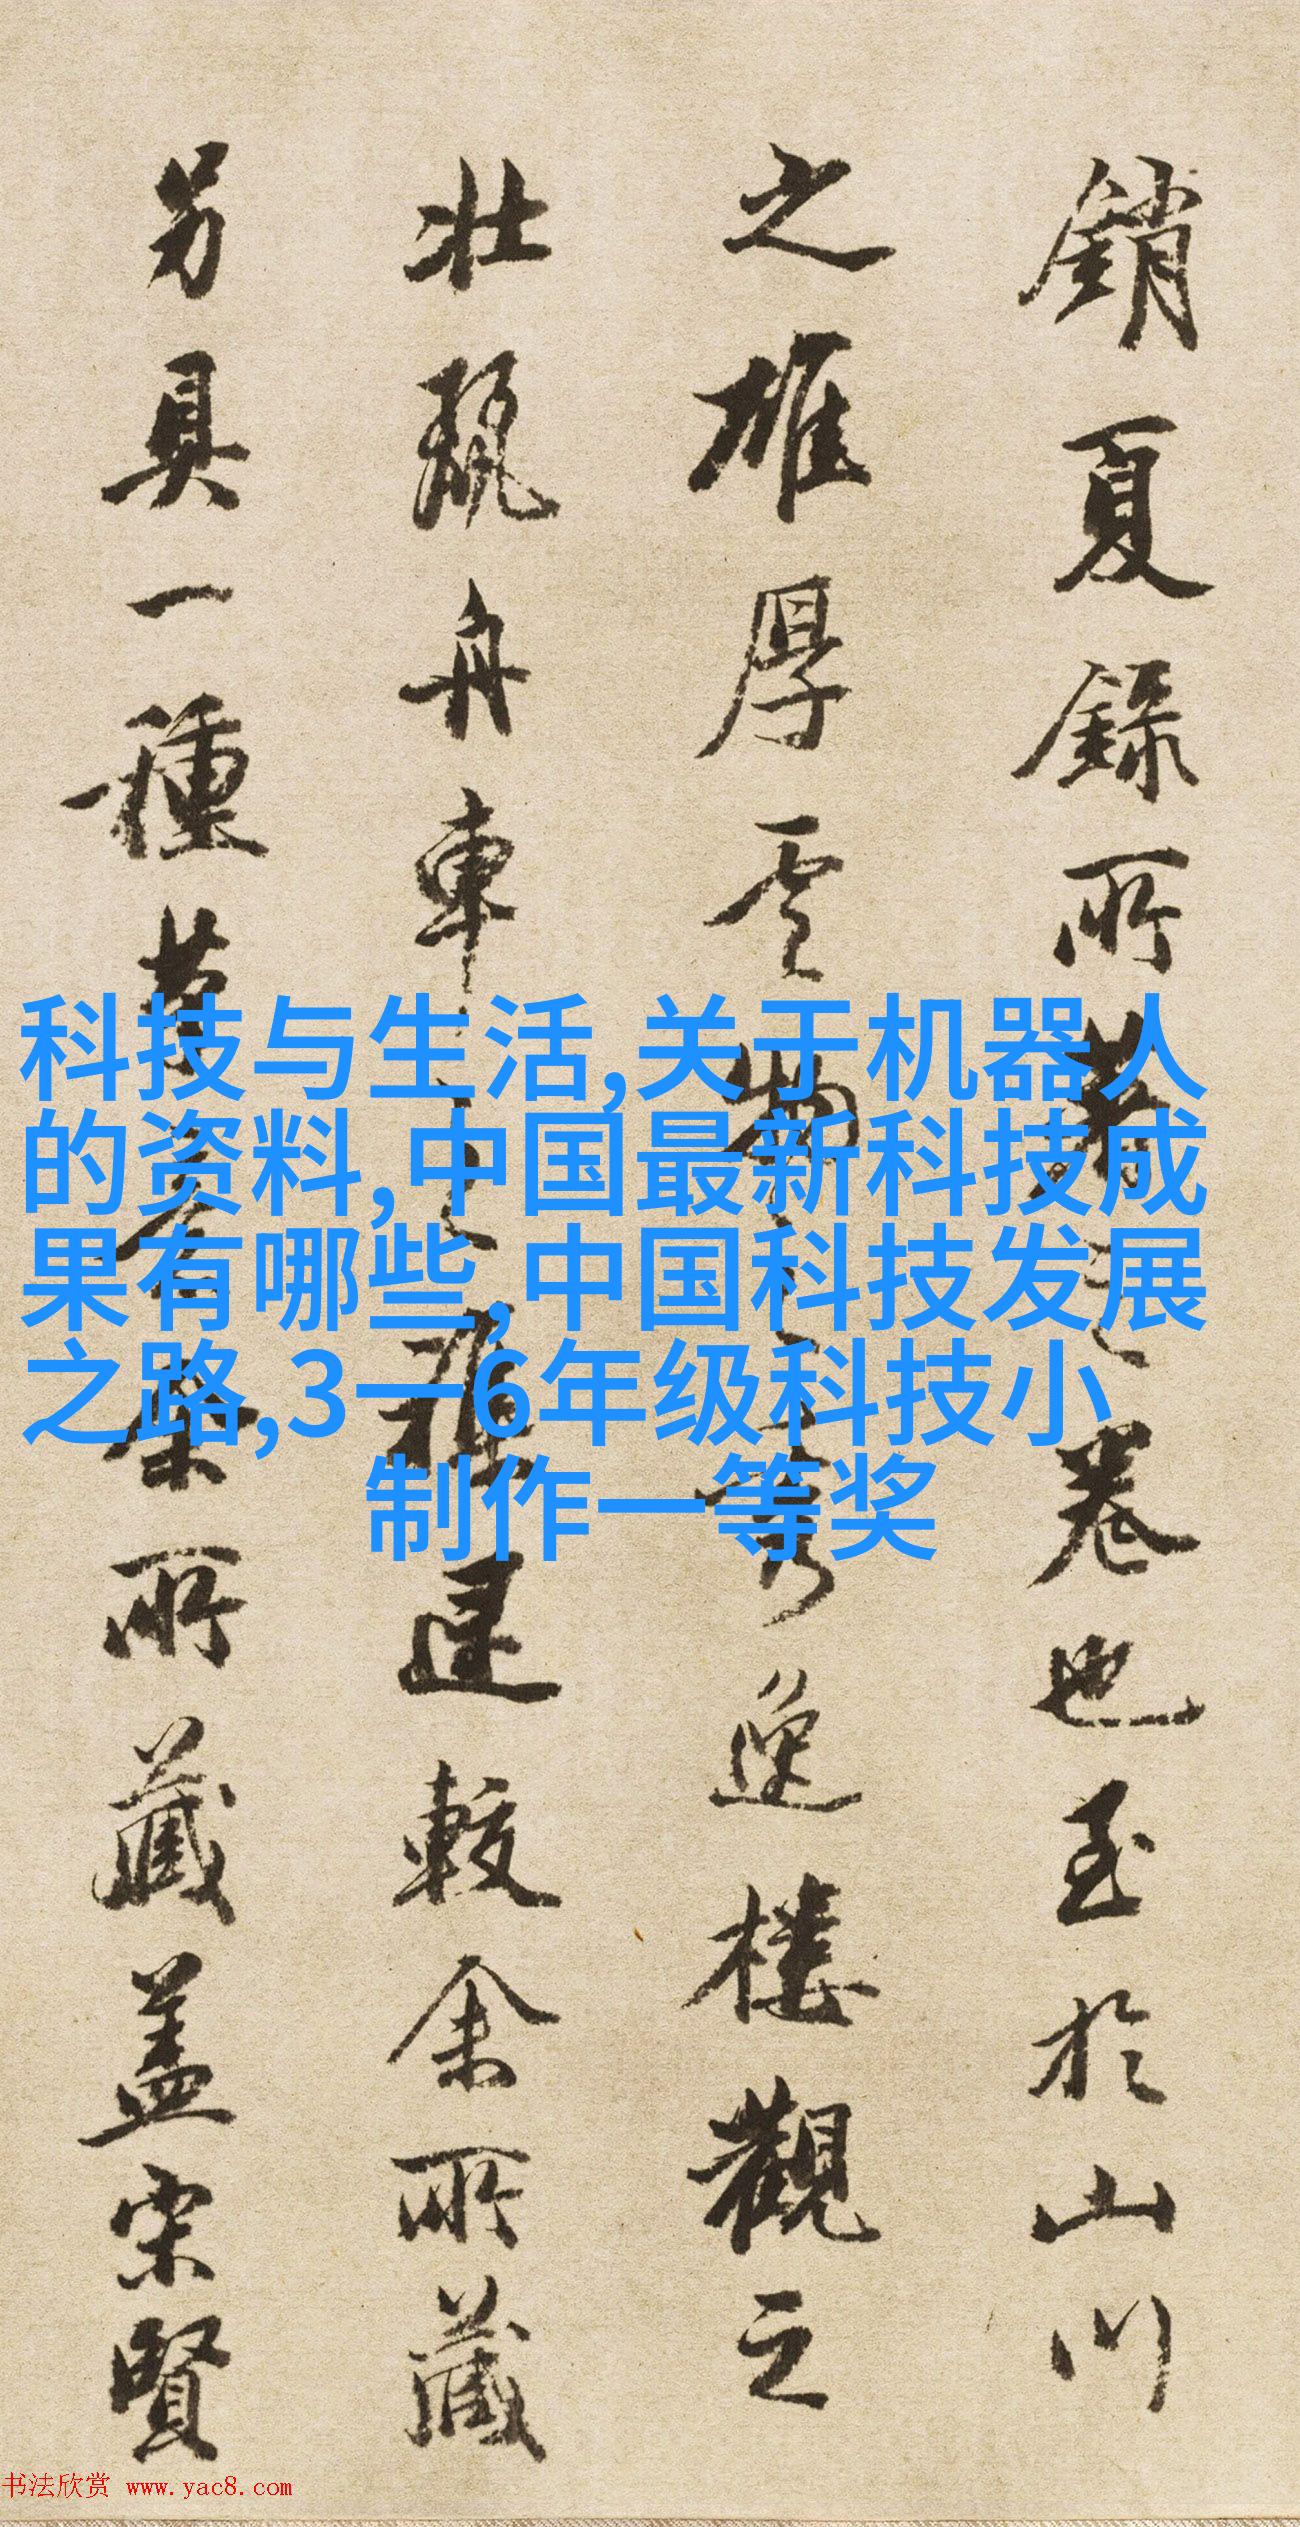 銷夏錄所著之卷也至於山川
之雄厚雲物之秀逸樓觀之
壯麗舟車之較余所藏
另具一種所藏蓋宋賢
科技与生活,关于机器人
的资料,中国最新科技成
果有哪些,中国科技发展
之路,3一6年级科技小
制作一等奖
书法欣赏 www.yac8.com